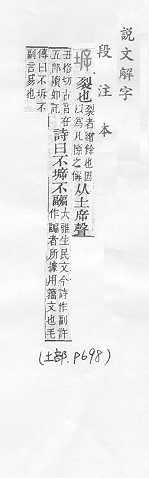 說文解字
段注本
裂也
裂者繒餘也因
以爲凡隙之偁
从土㡿聲
丑格切古音在
五部
詩曰不 不疈
大雅生民文今詩作副許
作疈者所據用籒文也毛
傳曰不坼不
副言易也
(土部, P698)